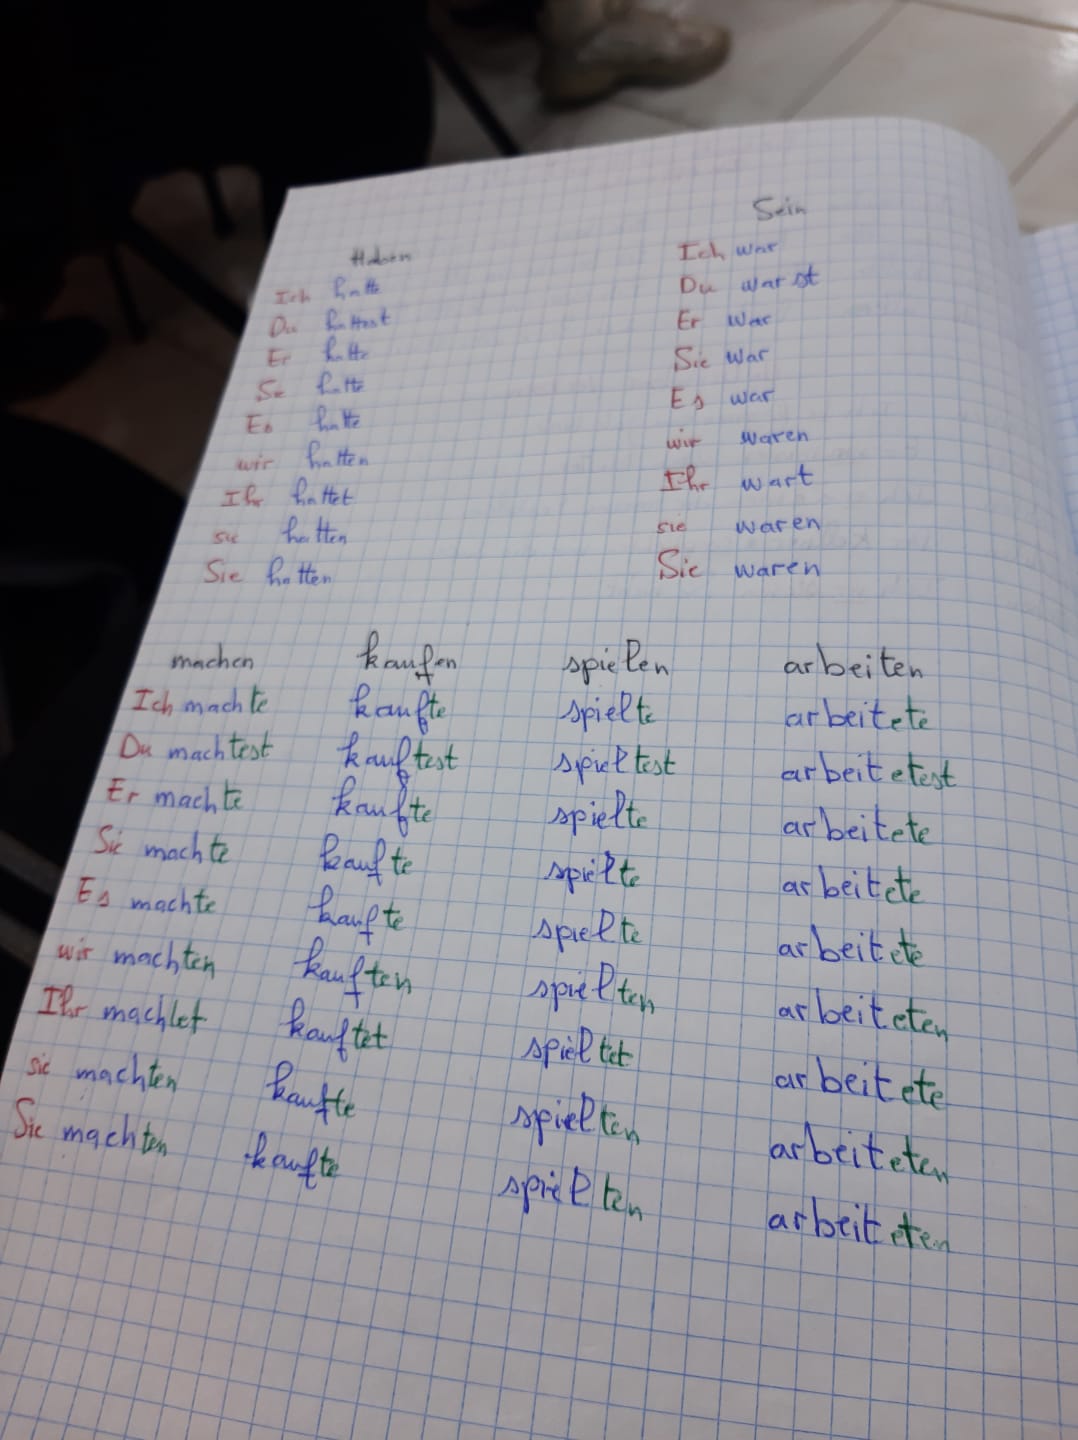 Haben
Ich hatte
Du hattest
Er hatte
Sie hatte
Es hatte
wir hatten
Ihr hattet
sie hatten
Sie hatten
Sein
Ich war
Du warst
Er war
Sie war
Es war
wir waren
Ihr wart
sie waren
Sie waren
machen kaufen spielen arbeiten
Ich machte kaufte spielte arbeitete
Du machtest kauftest spieltest arbeitetest
Er machte kaufte spielte arbeitete
Sie machte kaufte spielte arbeitete
Es machte kaufte spielte arbeitete
wir machten kauften spielten arbeiteten
Ihr machtet kauftet spieltet arbeitete
sie machten kaufte spielten arbeiteten
Sie machten kaufte spielten arbeiteten